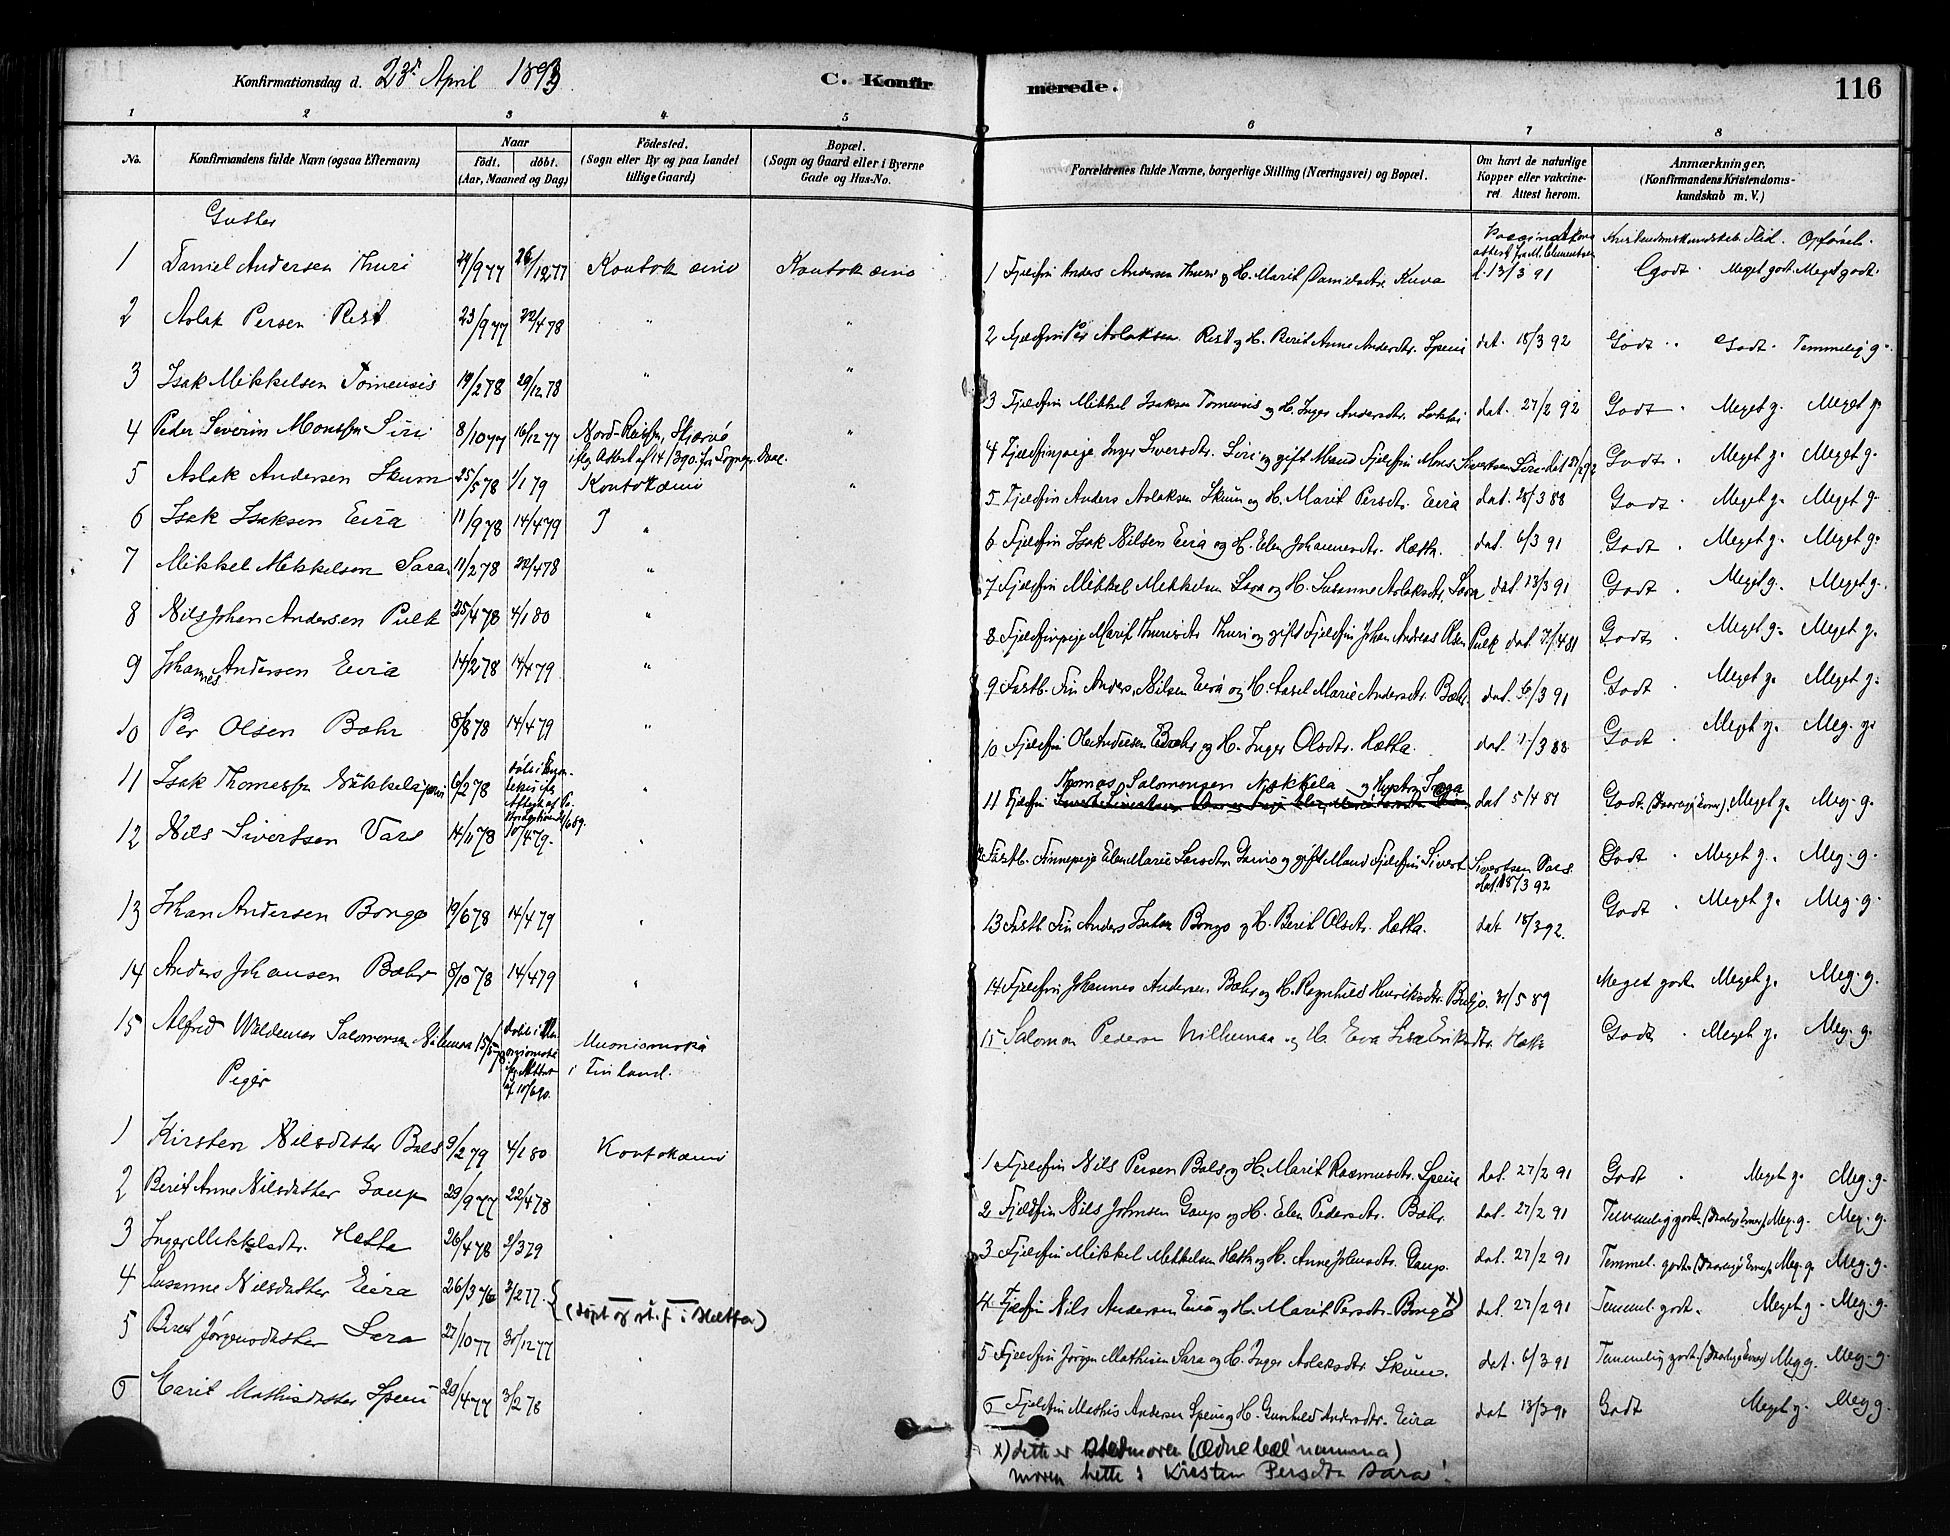 Konfirmationsdag d. 23d April 1893
C. Konfirmerede.
116
1 2 3 4 5 6 7 8
No.
Konfirmandens fulde Navn (ogsaa Efternavn)
Naar
födt. döbt.
(Aar, Maaned og Dag)
Födested.
(Sogn eller By og paa Landet
tillige Gaard)
Bopæl.
(Sogn og Gaard eller i Byerne
Gade og Hus-No.
Forældrenes fulde Navne, borgerlige Stilling (Næringsvei) og Bopæl.
Om havt de naturlige
Kopper eller vakcine-
ret. Attest herom.
Anmærkninger.
(Konfirmandens Kristendoms-
kundskab m. V.)
Gutter
Kristendomskundskab. Flid. Opførsel.
1 Daniel Andersen Thuri 24/9 77 26/12 77 Koutokæino Koutokæino
1 Fjeldfin Anders Andersen Thuri og H. Marit Danielsdtr. Kuva d. 13/3 91 Godt. Meget godt. Meget godt.
2 Aslak Persen Rist 23/9 77 22/4 78 " "
2 Fjeldfin Per Aslaksen Rist og H. Berit Anne Andersdtr. Spein dat. 18/3 92 Godt. Godt. Temmelig g.
3 Isak Mikkelsen Tornensis 19/2 78 29/12 78 " "
3 Fjeldfin Mikkel Isaksen Tornensis og H. Inger Andersdtr. dat. 27/2 92 Godt. Meget g. Meget g.
4 Peder Siverin Monssen Siri 8/10 77 16/12 77 Nord-Reisen, Skjervø "
iflg. Attest af 14/3 90. fra Sognepr.
4 Fjeldfinpige Inger Siversdtr. Siri og gift Mand Fjeldfin Mons Sivertsen Siri Godt. Meget g. Meget g.
5 Aslak Andersen Skum 25/5 78 1/1 79 Koutokæino "
5 Fjeldfin Anders Aslaksen Skum og H. Marit Persdtr. Eira dat. 28/3 88 Godt. Meget g. Meget g.
6 Isak Isaksen Eira 11/9 78 14/4 79 "
6 Fjeldfin Isak Nilsen Eira og H. Elen Johannesdtr. Hætta. dat. 6/3 91 Godt. Meget g. Meget g.
7 Mikkel Mikkelsen Sara 11/2 78 22/4 78 "
7 Fjeldfin Mikkel Mikkelsen Sara og H. Susanne Aslaksdtr. Sara dat. 13/3 91 Godt. Meget g. Meget g.
8 Nils Johan Andersen Pulk 25/4 78 4/1 80 "
8 Fjeldfinpige Marit Thurisdtr. Thuri og gift Fjeldfin Johan Andreas Olsen Pulk Godt. Meget g. Meget g.
9 Johannes Andersen Eira 14/2 78 14/4 79 "
9 Fastb. Fin Anders Nilsen Eira og H. Marie Andersdtr. Bæhr. dat. 6/3 91 Godt. Meget g. Meget g.
10 Per Olsen Bæhr 8/8 78 14/4 79 "
10 Fjeldfin Ole Andersen Bæhr og H. Inger Olsdtr. Hætta. Godt. Meget g. Meg. g.
11 Isak Thomassen 6/2 78 "
11 Fjeldfin Thomas Salomonsen Nækkela og Hustru Inga dat. 5/4 87 Godt. Meget g. Meg. g.
12 Nils Sivertsen Vars 14/11 78 10/4 79. "
12 Fastb. Finnepige Elen Marie og gift Mand Fjeldfin Sivert Sivertsen Vars dat. 18/3 92 Godt. Meget g. Meg. g.
13 Johan Andersen Bongo 19/6 78 14/4 79 "
13 Fastb. Fin Anders Bongo og H. Berit Olsdtr. Hætta. dat 18/3 92. Godt. Meget g. Meg. g.
14 Anders Johansen Bæhr 8/10 78 14/4 79 "
14 Fjeldfin Johannes Andersen Bæhr og H. Ragnhild Henriksdtr. Buljo. 31/5 89 Meget godt. Meget g. Meg. g.
15 Alfred Waldemar Salomonsen Muonioniska i Finland.
15 Salomon Pedersen og H. Eva Lisa Eriksdtr. Hætta Godt. Meget g. Meg. g.
Piger
1 Kirsten Nilsdatter Bals 9/2 79 4/1 80 Koutokæino
1 Fjeldfin Nils Persen Bals og H. Marit Rasmusdtr. Spein dat. 27/2 91 Godt. Meget g. Meg. g.
2 Berit Anne Nilsdatter Gaup 29/9 77 22/4 78 "
2 Fjeldfin Nils Johnsen Gaup og H. Elen Pedersdtr. Bæhr. dat. 27/2 91 Temmelig godt. Meg. g. Meg. g.
3 Inger Mikkelsdtr. Hætta 26/4 78 2/3 79 "
3 Fjeldfin Mikkel Mikkelsen Hætta og H. Anne Johnsdtr. Gaup. dat. 27/2 91 Temmel. godt. Meg. g. Meg. g.
4 Susanne Nilsdatter Eira 26/3 76 2/2 77. (døpt og st. f. i Hætta)
4 Fjeldfin Nils Andersen Eira og H. Marit Persdtr. Bongo x) dat. 27/2 91 Temmel. godt. Meget g. Meg. g.
5 Berit Jørgensdatter Sara 27/10 77 30/12 77 "
5 Fjeldfin Jørgen Mathisen Sara og H. Inger Aslaksdtr. Skum. dat. 6/3 91 Temmelig godt. Meg. g. Meg. g.
6 Marit Mathisdatter Spein 20/4 77 3/2 78 "
6 Fjeldfin Mathis Andersen Spein og H. Gunhild Andersdtr. Eira dat 13/3 91 Godt Meget g. Meg g.
x) dette er stedmoren (ædnebæl'namma)
moren hette: Kirsten Persdtr Sara!